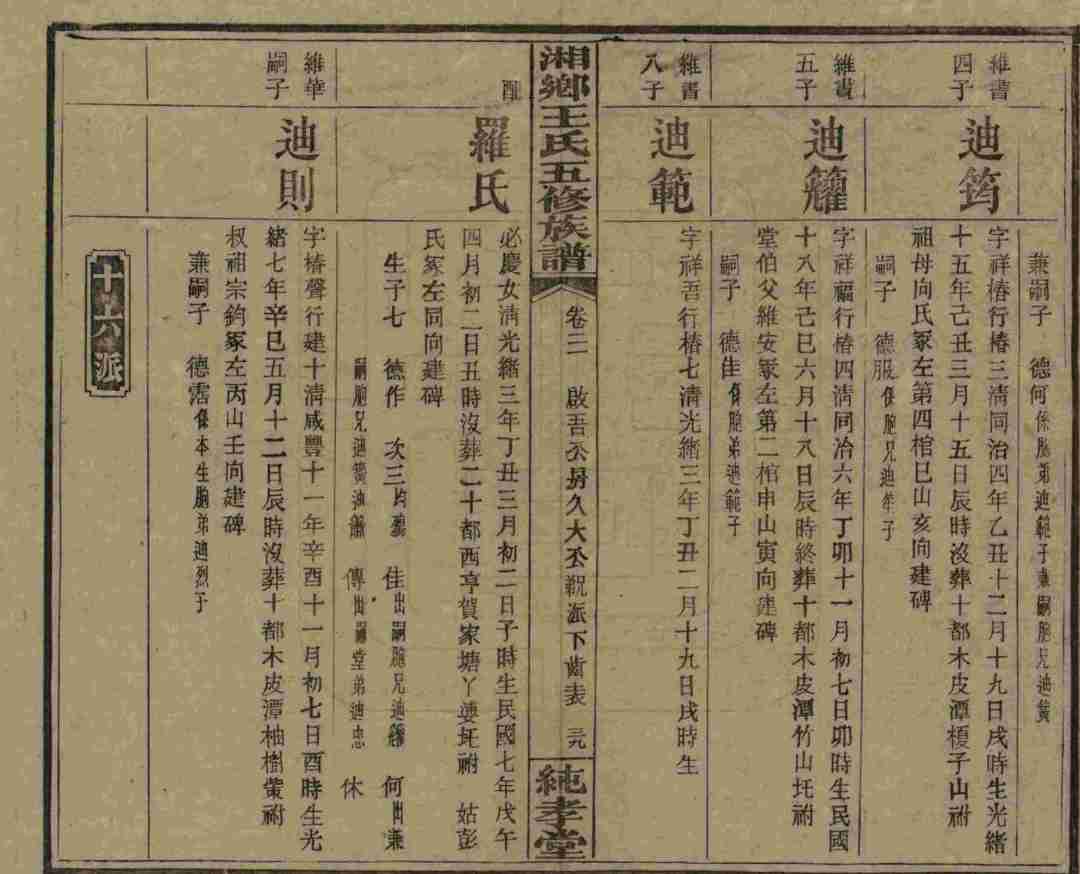 兼嗣子 德何係胞弟迪範子兼嗣胞兄迪簧
維書四子
迪筠
字祥椿行椿三清同治四年乙丑十二月十九日戌時生光緒
十五年己丑三月十五日辰時沒葬十都木皮潭榎子山祔
祖母向氏冢左第四棺巳山亥向建碑
嗣子 德服係胞兄迪
子
維書五子
迪籦
字祥福行椿四清同治六年丁卯十一月初七日卯時生民國
十八年己巳六月十八日辰時終葬十都木皮潭竹山圫祔
堂伯父維安冢左第二棺申山寅向建碑
嗣子 德佳係胞弟迪範子
維書八子
迪範
字祥吾行椿七清光緒三年丁丑二月十九日戌時生
湘鄉王氏五修族譜
卷三 啟吾公房久大公派下齒表 三九
純孝堂
配
羅氏
必慶女清光緒三年丁丑三月初二日子時生民國七年戊午
四月初二日丑時沒葬二十都西亨賀家塘丫婆圫祔 姑彭
氏冢左同向建碑
生子七 德作 次三均殤 佳出嗣胞兄迪籦 何出兼
嗣胞兄迪簧迪筠 傳出嗣堂弟迪忠 休
維華嗣子
迪則
字椿聲行建十清咸豐十一年辛酉十一月初七日酉時生光
緒七年辛巳五月十二日辰時沒葬十都木皮潭柚樹塋祔
叔祖宗鈞冢左丙山壬向建碑
兼嗣子 德霑係本生胞弟迪烈子
十六派